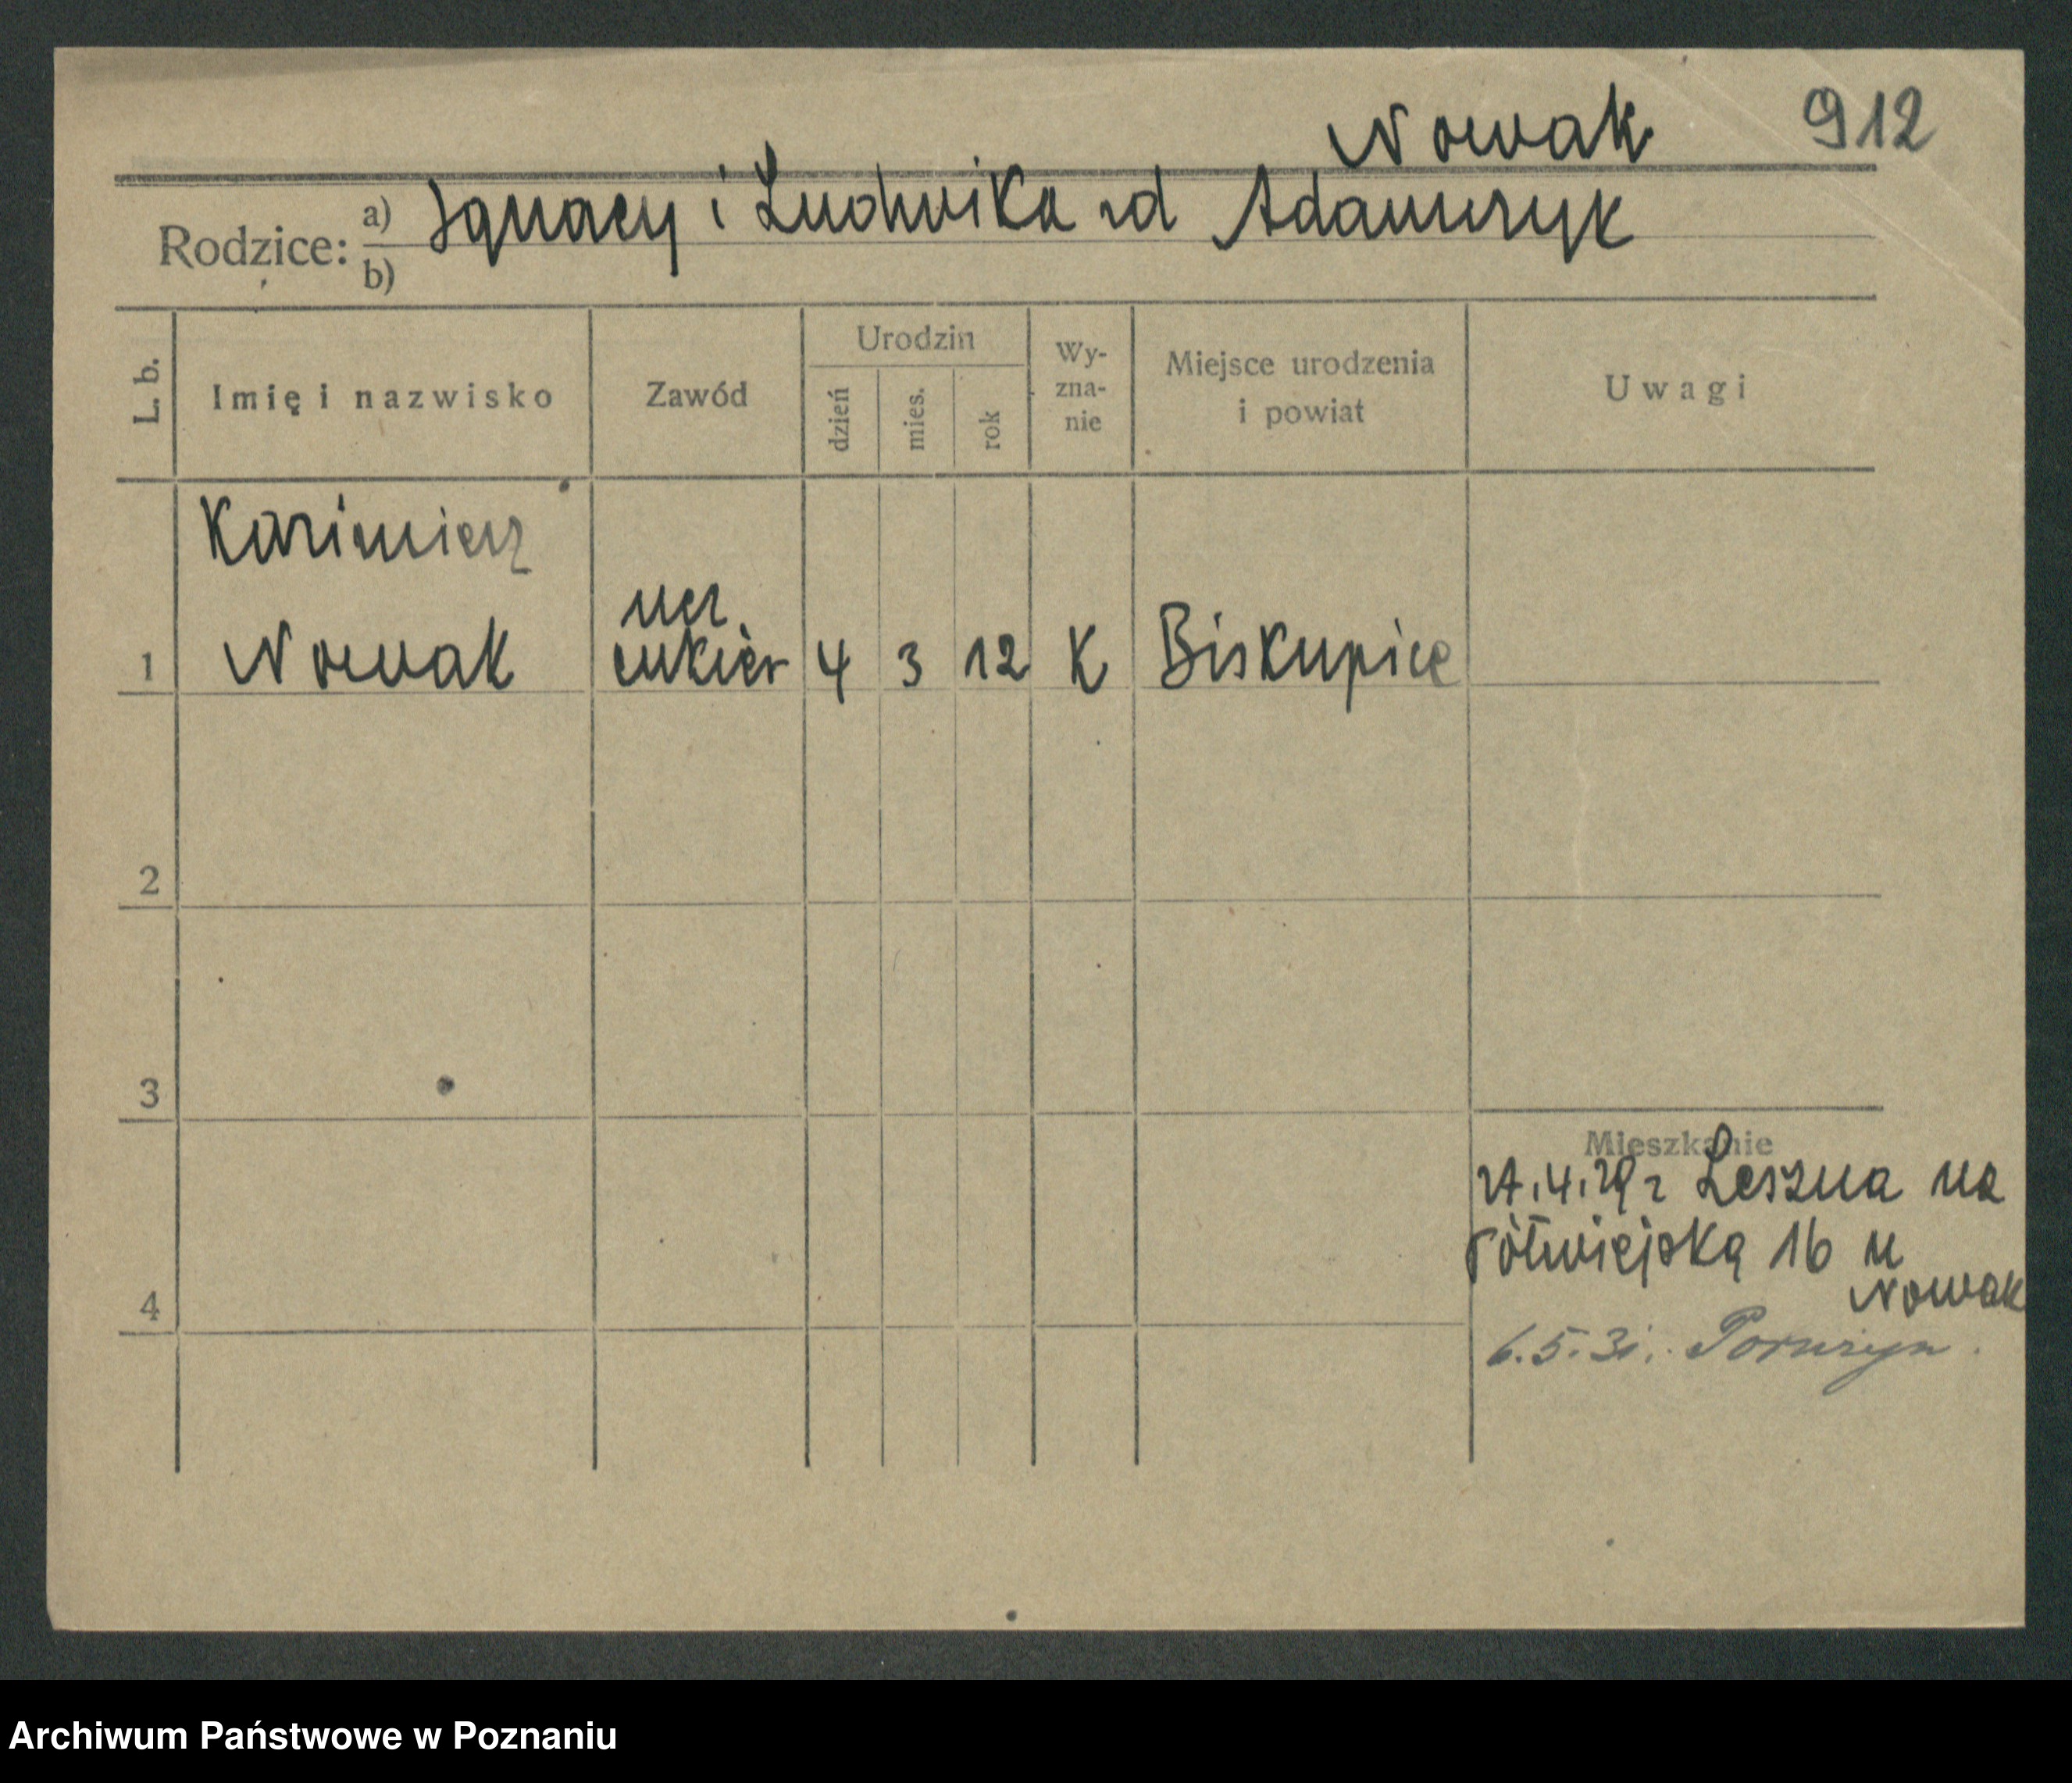 Nowak 912
Rodzice: a) Ignacy i Ludwika zd Adamczyk
b)
L. b. Imię i nazwisko Zawód Urodzin dzień mies. rok Wy-zna-nie Miejsce urodzenia i powiat Uwagi
Kazimierz
ucz.
1 Nowak cukier 4 3 12 K Biskupice
2
3
Mieszkanie
27.4.29 z Leszna na
Półwiejską 16 u
4 Nowak
6.5.31.
Archiwum Państwowe w Poznaniu